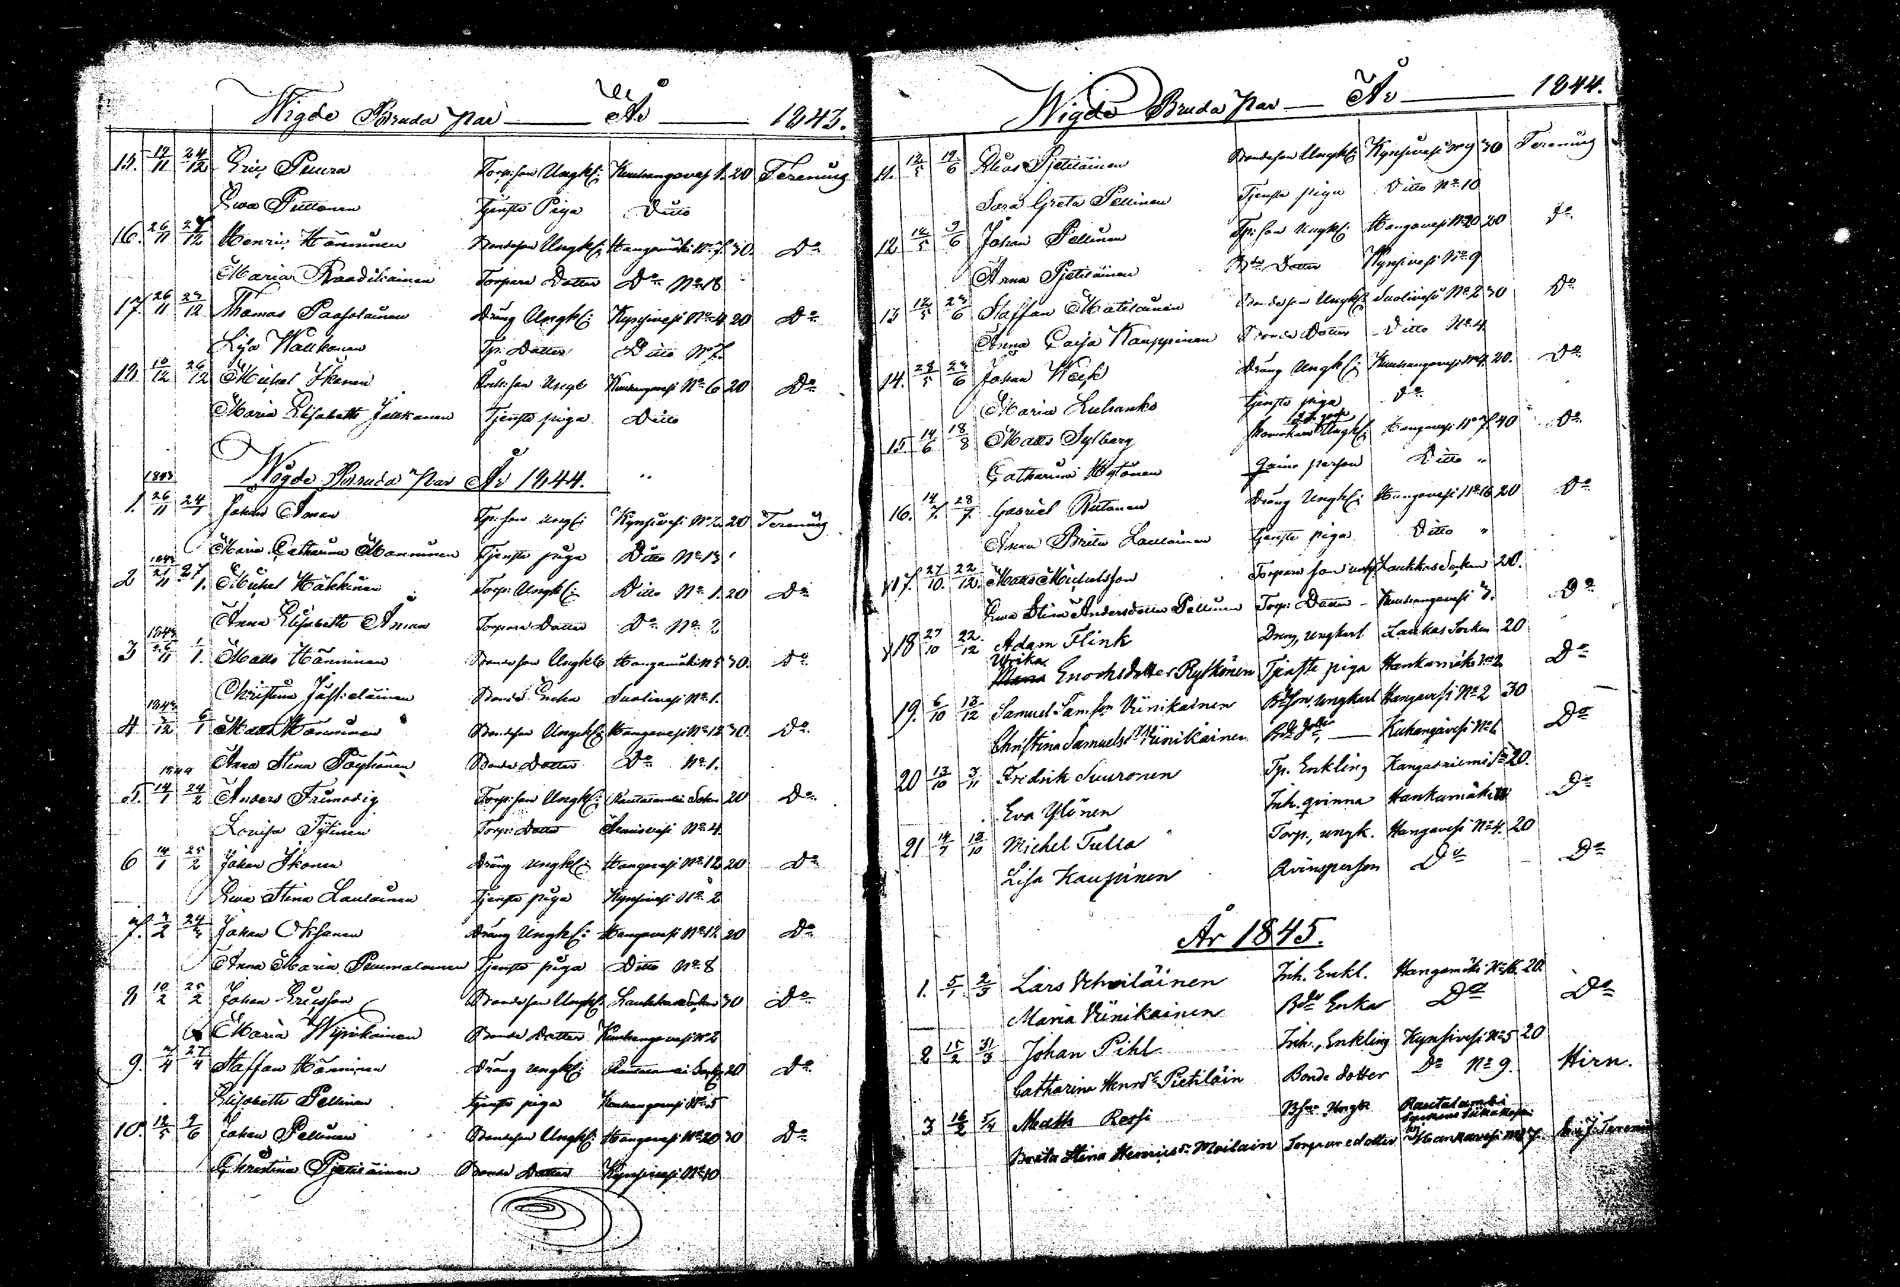 Wigde Bruda Par — År — 1843.
15. 19/11 24/12 Eric Peura Torp:son Ungkl: Kuuhangavesi 1. 20 Terenius
Ewa Puttonen Tjenste Piga Ditto
16. 26/11 27/12 Henric Hänninen Bondeson Ungkl: Hangamäki No 7. 30. Do
Maria Raadikainen Torpare Dotter Do No 18
17. 26/11 29/12 Thomas Paasolainen Dräng Ungkl: Kynsivesi No 4 20 Do
Lisa Wallkonen Tp: Dotter Ditto No 7.
18 10/12 26/12 Michel Ikonen Ungk Kuuhangavesi No 6 20 Do
Maria Elisabeth Jalkanen Tjenste piga Ditto
Wigde Bruda Par År 1844.
1843
1. 26/11 24/1 Johan Åman Tp: son ungk: Kynsivesi No 2. 20 Terenius
Maria Catharina Manninen Tjenste piga Ditto No 13
1843
2 21/11 27/1. Michel Häkkinen Torp: Ungkl: Ditto No 1. 20 Do
Anna Elisabeth Åman Torpare Dotter Do No 2
1843
3 26/11 1/1. Matts Hänninen Bondeson Ungkl Hangamäki N 5 30. Do
Christina Jässeläinen Bonde Enka Suolivesi No 1.
1843
4 3/12 6/1 Matts Hänninen Bondeson Ungkl Hangavesi No 12 30. Do
Anna Stina Pöyhönen Bonde Dotter Do No 1.
1844
5. 14/1 24/2 Anders Frimodig Torp:son Ungkl: Rautalambi Sokn 20 Do
Lovisa Tytinen Torp: Dotter No 4.
6 14/1 25/2 Johan Ikonen Dräng Ungkl: Hangavesi No 12 20 Do
Ewa Stina Lautainen Tjenste piga Kynsivesi No 2
7. 2/2 24/3 Johan Oksanen Dräng Ungkl: Hangavesi No 12 20 Do
Anna Maria Puumalainen Tjenste piga Ditto No 8
8 10/2 25/2 Johan Ericsson Bondeson Ungkl 30 Do
Maria Wijnikainen Bonde Dotter Kuuhangavesi No 2
9. 7/4 27/4 Staffan Hänninen Dräng Ungkl: Rautalambi 20 Do
Elisabeth Pellinen Tjenste piga Kuuhangavesi No 5
10. 12/5 9/6 Johan Pellinen Bondeson Ungkl: Hangavesi No 20 30 Do
Christina Pjetiläinen Bonde Dotter Kynsivesi No 10
Wigde Bruda Par — År — 1844.
11. 12/5 19/6 Elias Pjetiläinen Bondeson Ungkl: Kynsivesi No 9 30 Terenius
Sara Greta Pellinen Tjenste piga Ditto No 10
12 12/5 9/6 Johan Pellinen Tp: son Ungkl: Hangavesi No 20 20 Do
Anna Pjetiläinen Bde Dotter Kynsivesi No 9
13 12/5 29/6 Staffan Matilainen Bondeson Ungkl: Suolivesi No 2 30 Do
Anna Caisa Kauppinen Bonde Dotter Ditto No 4
14. 28/5 29/6 Johan Dräng Ungkl: Kuuhangavesi No 4 20. Do
Maria Luhanko Tjenste piga Do
15 14/6 18/8 Matts Sylberg Ungkl Hangavesi No 7 40 Do
Catharina Hytönen person Ditto "
16. 14/7 28/7. Gabriel Ruttonen Dräng Ungkl: Hangavesi No 16 20 Do
Anna Brita Lautainen Tjenste piga Ditto "
17. 27/10. 22/12. Matts Michelsson Torpare son ungk Laukkas Socken 20.
Ewa Stina Andersdotter Pellinen Torp: Dotter — Kuuhangavesi 7. Do
18 27/10 22/12 Adam Flink Dreng, ungkarl Laukas Socken 20
Ulrika Enochsdotter Rytkönen Tjenste piga Hankamäki No 2 Do
19. 6/10 13/12 Samuel Samson Winikainen Bdeson, ungkarl Hangavesi No 2 30
Christina Samuelsdr Winikainen Bde dotter — Kuhangavesi No 6 Do
20 13/10 3/11 Fredrik Suuronen Tp. Enkling Kangasniemi Sn 20.
Eva Ylönen Inh. qvinna Hankamäki Do
21 14/7 13/10 Michel Tulla Torp, ungk. Hangavesi No 4. 20
Lisa Kaupinen Qvinsperson Do Do
År 1845.
1. 5/1. 2/3 Lars Vehviläinen Inh. Enkl. Hangamäki No 16. 20.
Maria Winikainen Bde Enka Do Do
2 15/2 31/3 Johan Pihl Inh., Enkling Kynsivesi No 5 20
Catharina Henrsdr Pietiläin Bonde dotter Do No 9. Hirn.
3 16/2 5/4 Matts Rossi Bson Ungk Rautalambi
Brita Stina Henricsdr Moilain Torpare dotter Hankavesi No 7.